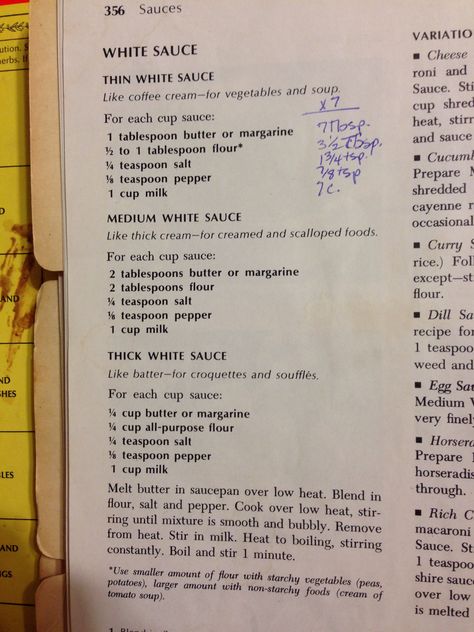 356 Sauces
WHITE SAUCE
THIN WHITE SAUCE
Like coffee cream—for vegetables and soup.
x 7
For each cup sauce:
1 tablespoon butter or margarine 7 Tbsp.
½ to 1 tablespoon flour* 3½ Tbsp.
¼ teaspoon salt 1¾ tsp.
⅛ teaspoon pepper 7/8 tsp
1 cup milk 7 c.
MEDIUM WHITE SAUCE
Like thick cream—for creamed and scalloped foods.
For each cup sauce:
2 tablespoons butter or margarine
2 tablespoons flour
¼ teaspoon salt
⅛ teaspoon pepper
1 cup milk
THICK WHITE SAUCE
Like batter—for croquettes and soufflés.
For each cup sauce:
¼ cup butter or margarine
¼ cup all-purpose flour
¼ teaspoon salt
⅛ teaspoon pepper
1 cup milk
Melt butter in saucepan over low heat. Blend in
flour, salt and pepper. Cook over low heat, stir-
ring until mixture is smooth and bubbly. Remove
from heat. Stir in milk. Heat to boiling, stirring
constantly. Boil and stir 1 minute.
*Use smaller amount of flour with starchy vegetables (peas,
potatoes), larger amount with non-starchy foods (cream of
tomato soup).
VARIATIO
■ Cheese
roni and
Sauce. Sti
cup shred
heat, stirr
and sauce
■ Cucum
Prepare M
shredded
cayenne r
occasional
■ Curry S
rice.) Foll
except—st
flour.
■ Dill Sa
recipe for
1 teaspoo
weed and
■ Egg Sau
Medium W
very finel
■ Horsera
Prepare
horseradis
through.
■ Rich C
macaroni
Sauce. St
1 teaspoo
shire sauce
over low
is melted
ution. S
erbs. If
AND
ND
HES
BLES
AND
NGS